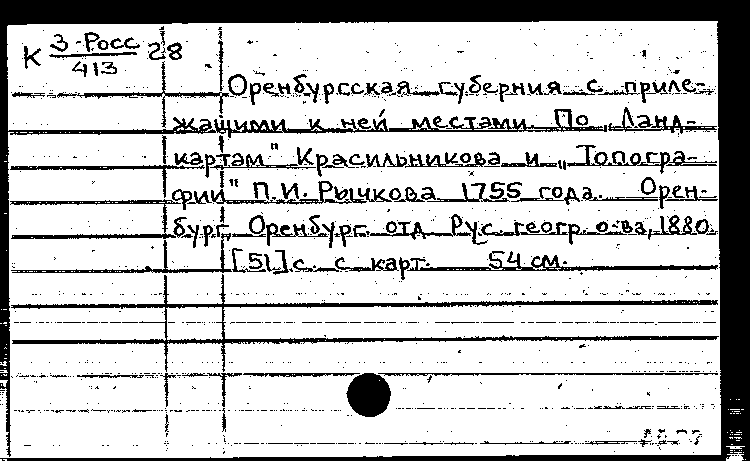 К 3-Росс 28
413
Оренбургская губерния с приле-
жащими к ней местами. По „Ланд-
картам" Красильникова и „Топогра-
фии" П.И. Рычкова 1755 года. Орен-
бург, Оренбург. отд. Рус. геогр. о-ва, 1880.
[51] с. с карт. 54 см.